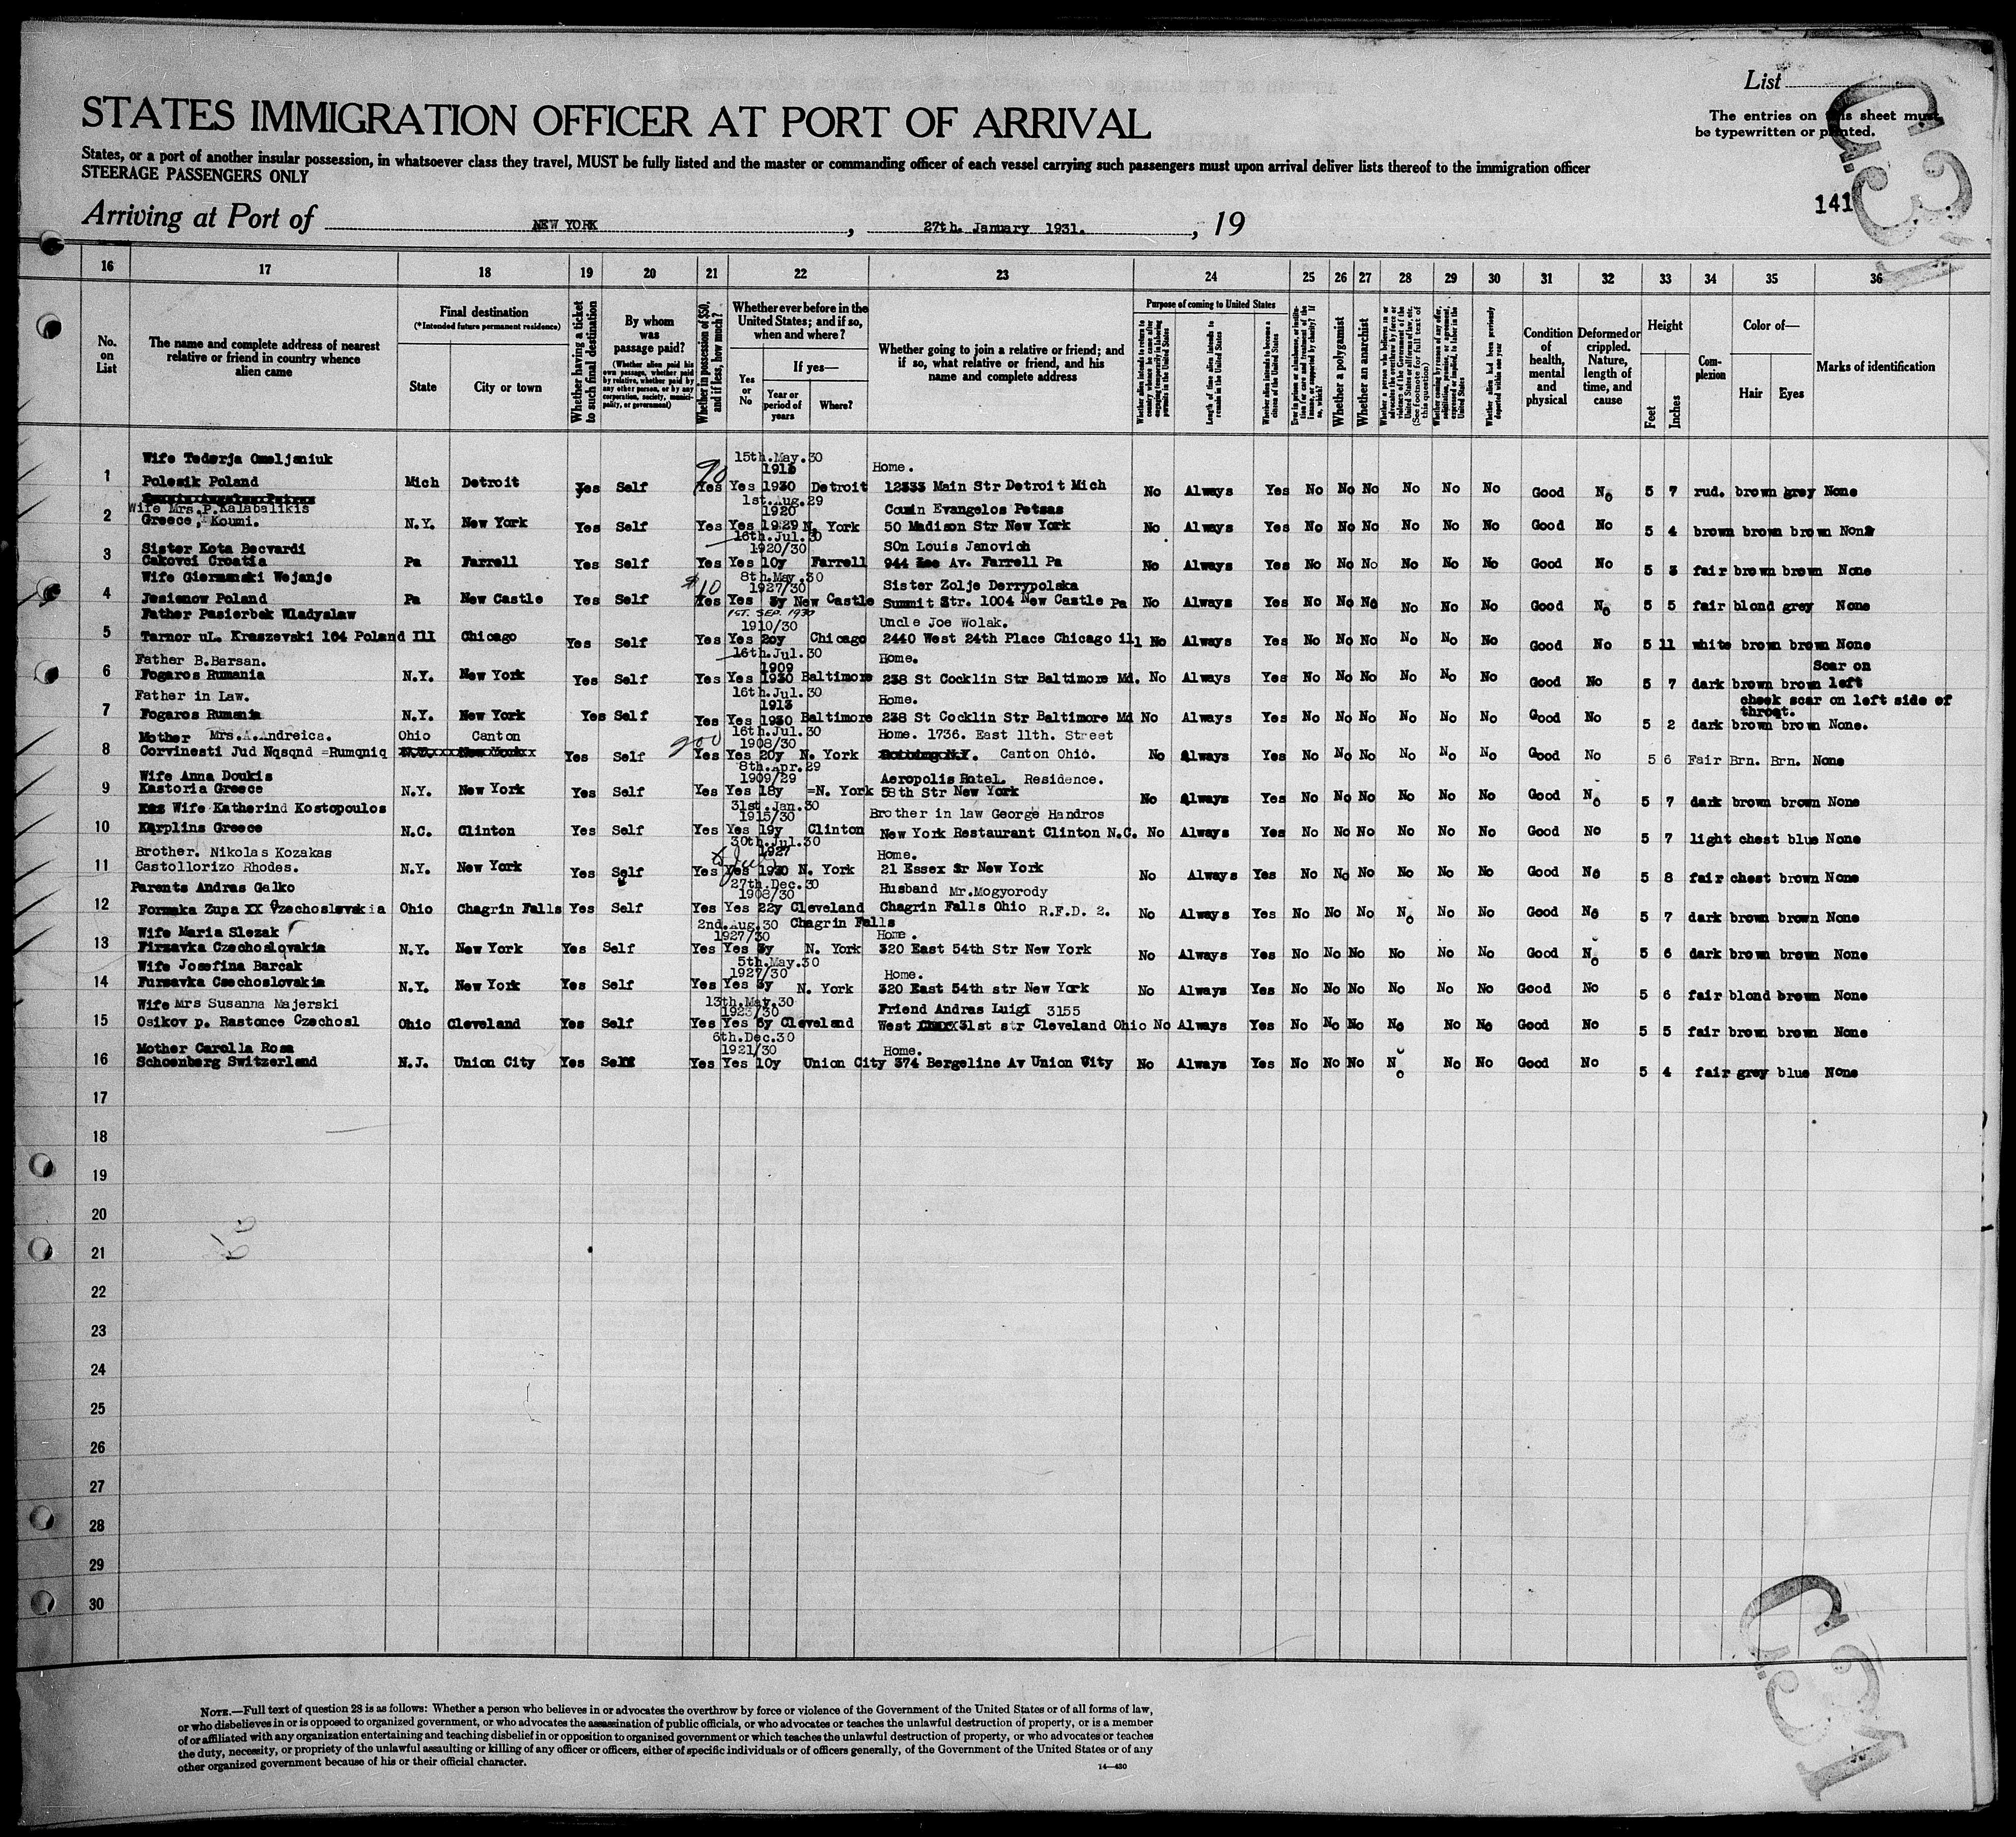 List
The entries on this sheet must
be typewritten or printed.
STATES IMMIGRATION OFFICER AT PORT OF ARRIVAL
States, or a port of another insular possession, in whatsoever class they travel, MUST be fully listed and the master or commanding officer of each vessel carrying such passengers must upon arrival deliver lists thereof to the immigration officer
STEERAGE PASSENGERS ONLY
141
Arriving at Port of NEW YORK, 27th. January 1931., 19
16 17 18 19 20 21 22 23 24 25 26 27 28 29 30 31 32 33 34 35 36
No. on List
The name and complete address of nearest relative or friend in country whence alien came
Final destination
(*Intended future permanent residence)
State
City or town
Whether having a ticket to such final destination
By whom was passage paid?
(Whether alien paid his own passage, whether paid by relative, whether paid by any other person, or by any corporation, society, municipality, or government)
Whether in possession of $50, and if less, how much?
Whether ever before in the United States; and if so, when and where?
Yes or No
If yes—
Year or period of years
Where?
Whether going to join a relative or friend; and if so, what relative or friend, and his name and complete address
Purpose of coming to United States
Length of time alien intends to remain in the United States
Whether alien intends to become a citizen of the United States
Whether a polygamist
Whether an anarchist
Condition of health, mental and physical
Deformed or crippled. Nature, length of time, and cause
Height
Feet
Inches
Complexion
Color of—
Hair
Eyes
Marks of identification
Wife Tederja Omeljaniuk 15th.May.30 1913 Home.
1 Polesik Poland Mich Detroit Yes Self 90 Yes Yes 1930 Detroit 12333 Main Str Detroit Mich No Always Yes No No No No No No Good No 5 7 rud. brown grey None
Wife Mrs.P.Kalabalikis 1st.Aug.29 1920 Cousin Evangelos Patsas
2 Greece, Koumi. N.Y. New York Yes Self Yes Yes 1929 N. York 50 Madison Str New York No Always Yes No No No No No No Good No 5 4 brown brown brown None
Sister Kota Becvardi 16th.Jul.30 1920/30 SOn Louis Janovich
3 Cakovci Croatia Pa Farrell Yes Self Yes Yes 10y Farrell 944 Av. Farrell Pa No Always Yes No No No No No No Good No 5 3 fair brown brown None
Wife Giermanski Wejanje 8th.May.30 1927/30 Sister Zolje Derrypolska
4 Jasienow Poland Pa New Castle Yes Self $10 Yes Yes 3y New Castle Summit Str. 1004 New Castle Pa No Always Yes No No No No No No Good No 5 5 fair blond grey None
Father Pasierbek Wladyslaw 1ST. SEP. 1930 1910/30 Uncle Joe Wolak.
5 Tarnor ul. Kraszevski 164 Poland Ill Chicago Yes Self Yes Yes 20y Chicago 2440 West 24th Place Chicago ill No Always Yes No No No No No No Good No 5 11 white brown brown None
Father B.Barsan. 16th.Jul.30 1909 Home. Scar on
6 Fogaros Rumania N.Y. New York Yes Self Yes Yes 1930 Baltimore 238 St Cocklin Str Baltimore Md. No Always Yes No No No No No No Good No 5 7 dark brown brown left
Father in Law. 16th.Jul.30 1913 Home. cheek scar on left side of throat.
7 Fogaros Rumania N.Y. New York Yes Self Yes Yes 1930 Baltimore 238 St Cocklin Str Baltimore Md No Always Yes No No No No No No Good No 5 2 dark brown brown None.
Mother Mrs.A.Andreica. Ohio Canton 16th.Jul.30 1908/30 Home. 1736. East 11th. Street
8 Corvinesti Jud Nqsqnd =Rumqniq Yes Self 200 Yes Yes 20y N. York Canton Ohio. No Always Yes No No No No No No Good No 5 6 Fair Brn. Brn. None
Wife Anna Doukis 8th.Apr.29 1909/29 Aeropolis Hotel. Residence.
9 Kastoria Greece N.Y. New York Yes Self Yes Yes 18y =N. York 58th Str New York No Always Yes No No No No No No Good No 5 7 dark brown brown None
Wife Katherind Kostopoulos 31st.Jan.30 1915/30 Brother in law George Handros
10 Karplins Greece N.C. Clinton Yes Self Yes Yes 19y Clinton New York Restaurant Clinton N.C. No Always Yes No No No No No No Good No 5 7 light chest blue None
Brother. Nikolas Kozakas 30th.Jul.30 1927 Home.
11 Castollorizo Rhodes. N.Y. New York Yes Self Yes Yes 1930 N. York 21 Essex Sr New York No Always Yes No No No No No No Good No 5 8 fair chest brown None
Parents Andras Galko 27th.Dec.30 1908/30 Husband Mr.Mogyorody
12 Formaka Zupa XX Czechoslovakia Ohio Chagrin Falls Yes Self Yes Yes 22y Cleveland Chagrin Falls Ohio R.F.D. 2. No Always Yes No No No No No No Good No 5 7 dark brown brown None
Wife Maria Slezak 2nd.Aug.30 Chagrin Falls 1927/30 Home.
13 Firzavka Czechoslovakia N.Y. New York Yes Self Yes Yes 3y N. York 320 East 54th Str New York No Always Yes No No No No No No Good No 5 6 dark brown brown None
Wife Josefina Barcak 5th.May.30 1927/30 Home.
14 Fursavka Czechoslovakia N.Y. New York Yes Self Yes Yes 3y N. York 320 East 54th str New York No Always Yes No No No No No No Good No 5 6 fair blond brown None
Wife Mrs Susanna Majerski 13th.May.30 1923/30 Friend Andras Luigi 3155
15 Osikov p. Rastonce Czechosl Ohio Cleveland Yes Self Yes Yes 6y Cleveland West 31st str Cleveland Ohio No Always Yes No No No No No No Good No 5 5 fair brown brown None
Mother Carolla Rosa 6th.Dec.30 1921/30 Home.
16 Schoenberg Switzerland N.J. Union City Yes Self Yes Yes 10y Union City 374 Bergeline Av Union City No Always Yes No No No No No No Good No 5 4 fair grey blue None
17
18
19
20
21
22
23
24
25
26
27
28
29
30
NOTE.—Full text of question 28 is as follows: Whether a person who believes in or advocates the overthrow by force or violence of the Government of the United States or of all forms of law,
or who disbelieves in or is opposed to organized government, or who advocates the assassination of public officials, or who advocates or teaches the unlawful destruction of property, or is a member
of or affiliated with any organization entertaining and teaching disbelief in or opposition to organized government or which teaches the unlawful destruction of property, or who advocates or teaches
the duty, necessity, or propriety of the unlawful assaulting or killing of any officer or officers, either of specific individuals or of officers generally, of the Government of the United States or of any
other organized government because of his or their official character.
14—430